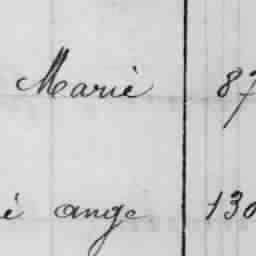 Marie 87
é ange 130